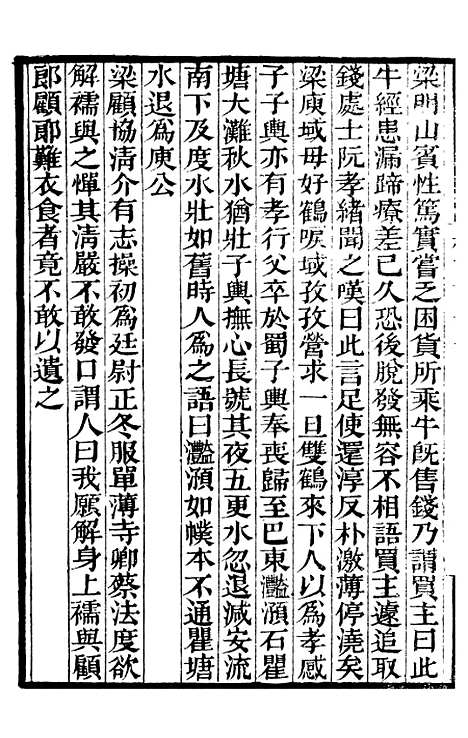 梁明山賓性篤實嘗乏困貨所乘牛旣售錢乃謂買主曰此
牛經患漏蹄療差已久恐後脫發無容不相語買主遽追取
錢處士阮孝緒聞之嘆曰此言足使還淳反朴激薄停澆矣
梁庾域母好鶴唳域孜孜營求一旦雙鶴來下人以爲孝感
子子輿亦有孝行父卒於蜀子輿奉喪歸至巴東灩澦石瞿
塘大灘秋水猶壯子輿撫心長號其夜五更水忽退減安流
南下及度水壯如舊時人爲之語曰灩澦如幞本不通瞿塘
水退爲庾公
梁顧協淸介有志操初爲廷尉正冬服單薄寺卿蔡法度欲
解襦與之憚其淸嚴不敢發口謂人曰我願解身上襦與顧
郎顧郎難衣食者竟不敢以遺之